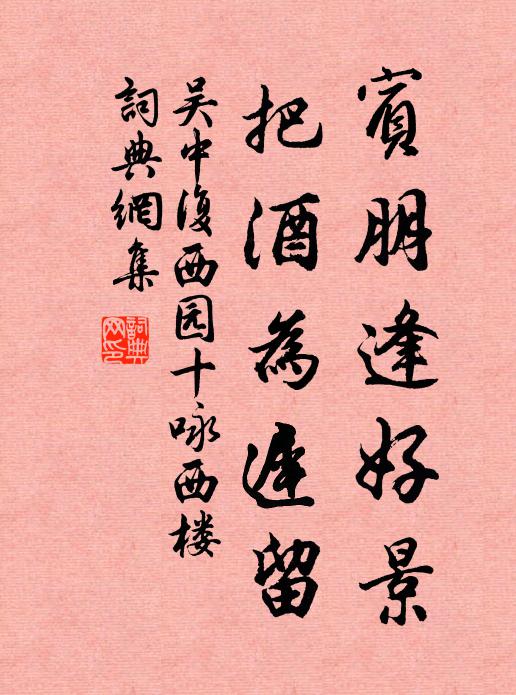 賓朋逢好景
把酒為遲留
吴中復西园十咏西楼
詞典網集
詞典网印